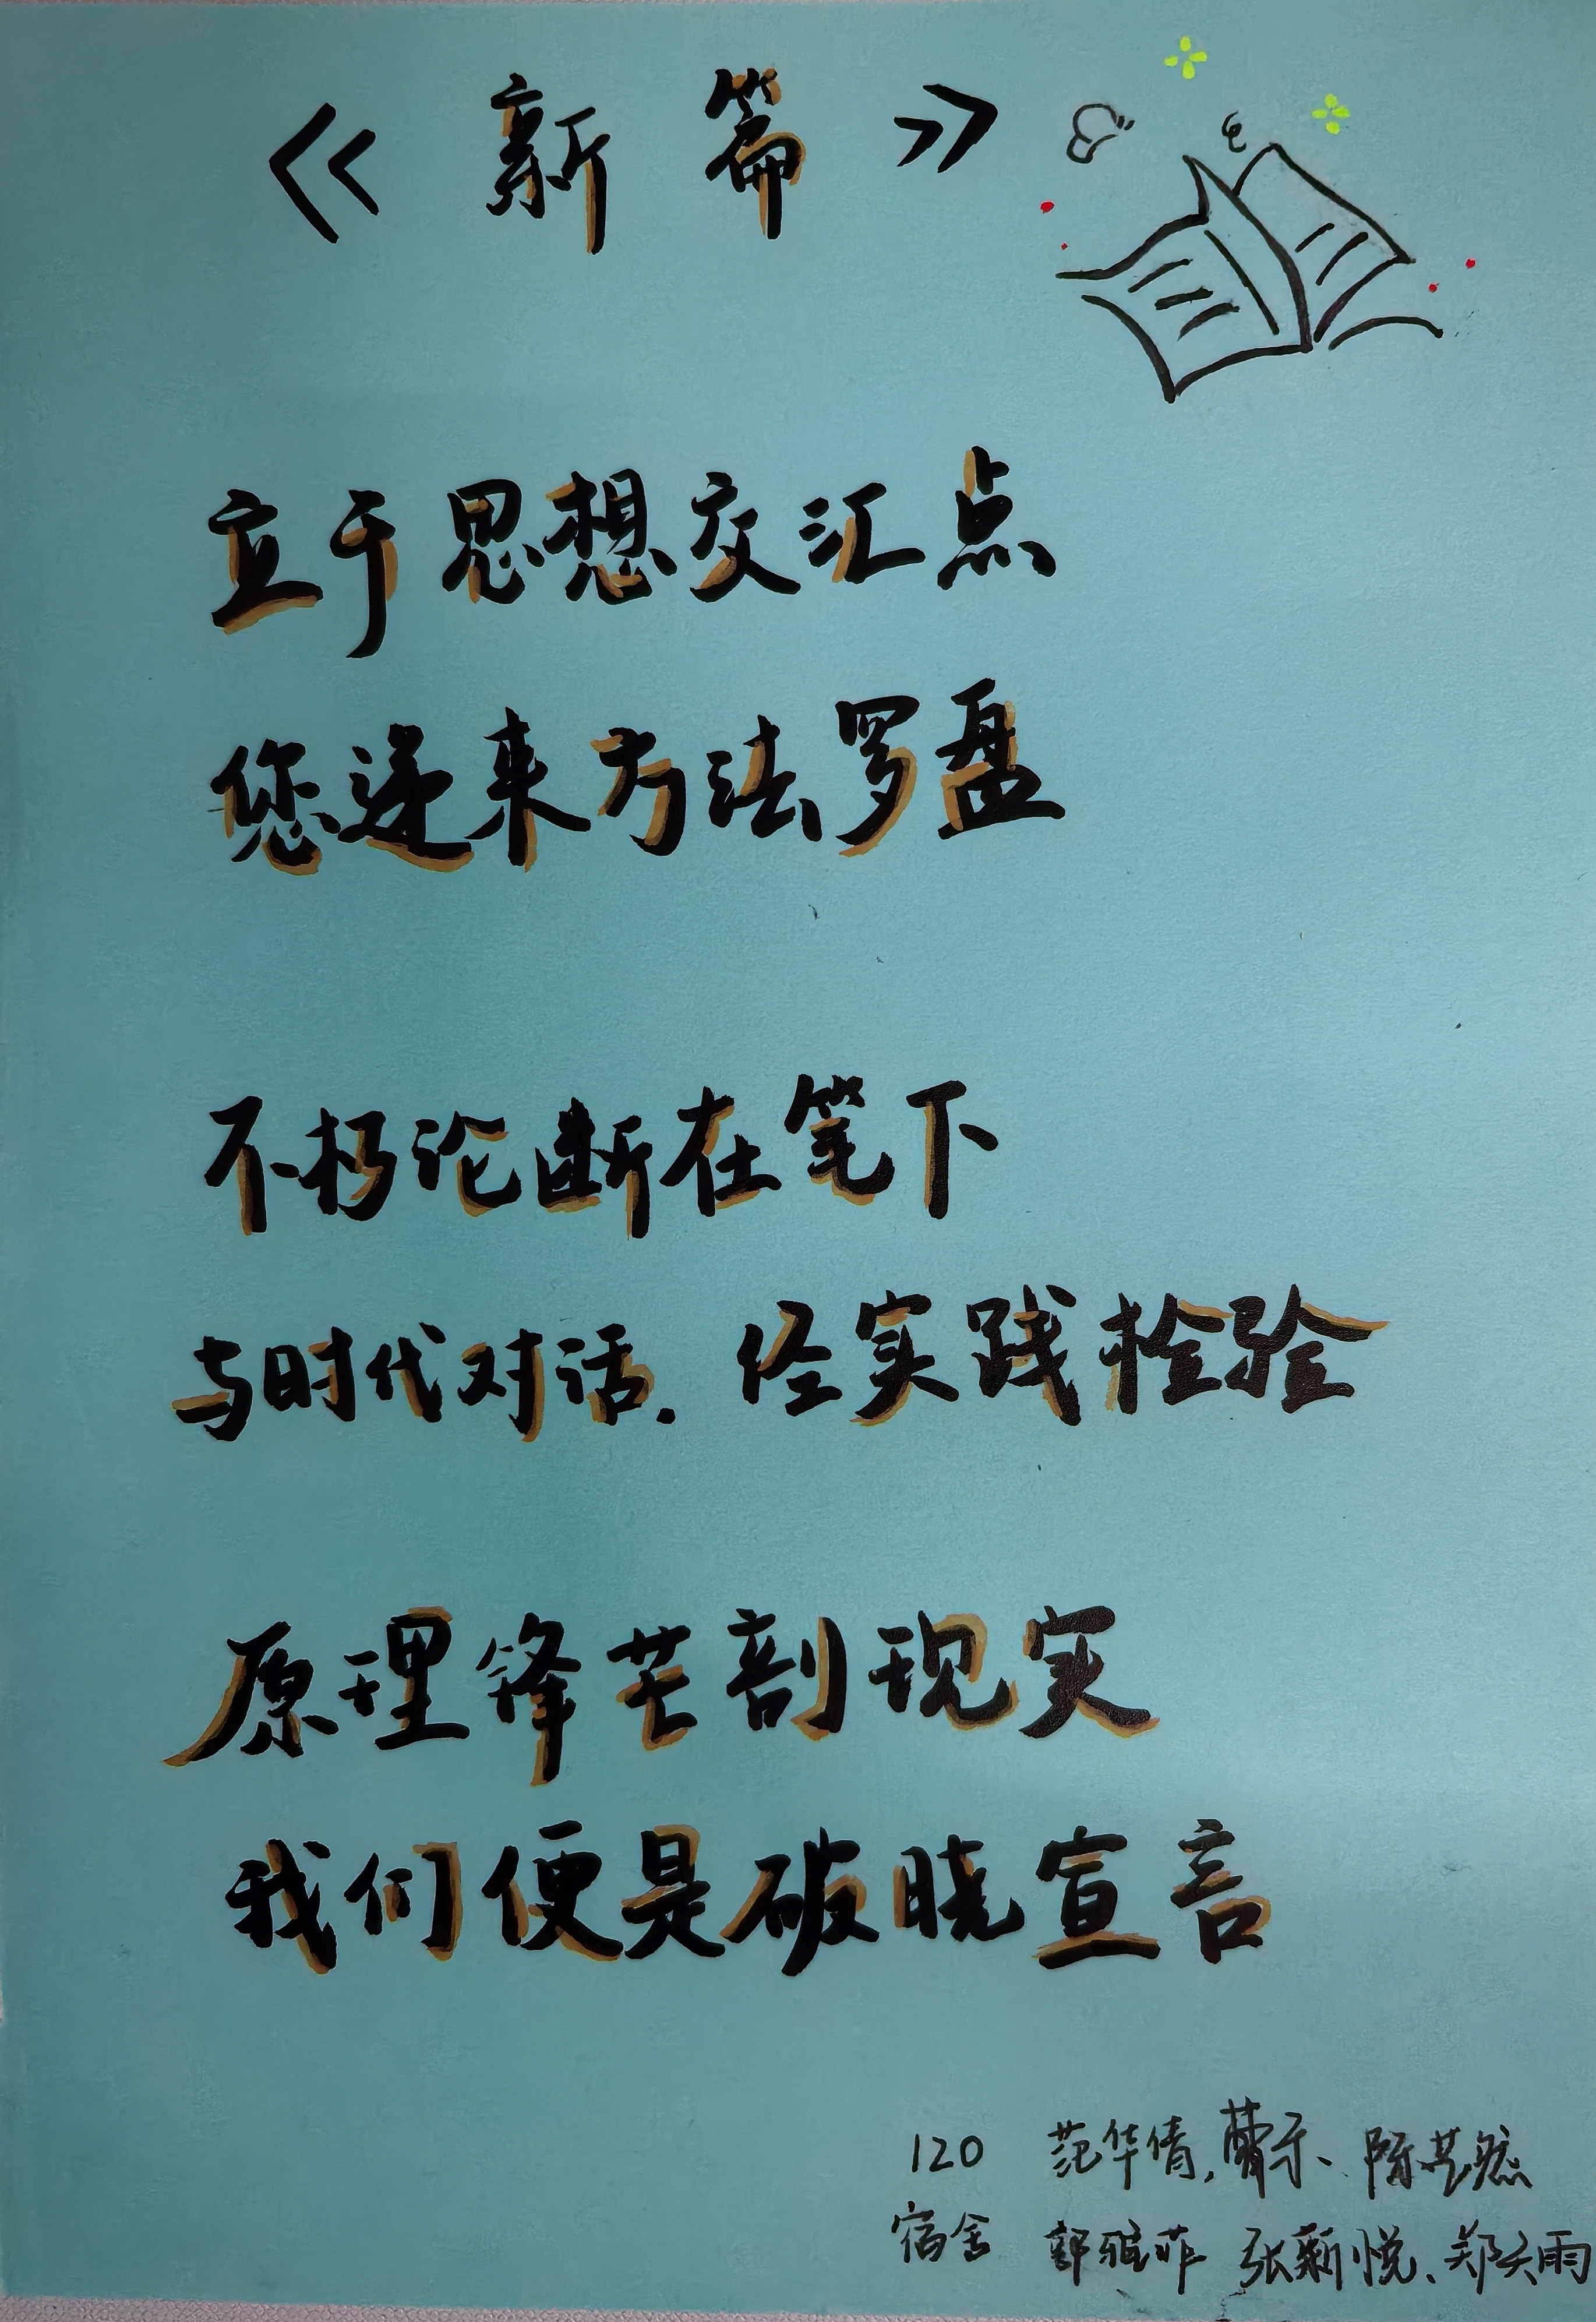 《新篇》
立于思想交汇点
您递来方法罗盘
不朽论断在笔下
与时代对话.经实践检验
原理锋芒剖现实
我们便是破晓宣言
120 范华倩,
宿舍 郭雅菲 张新悦、郑天雨